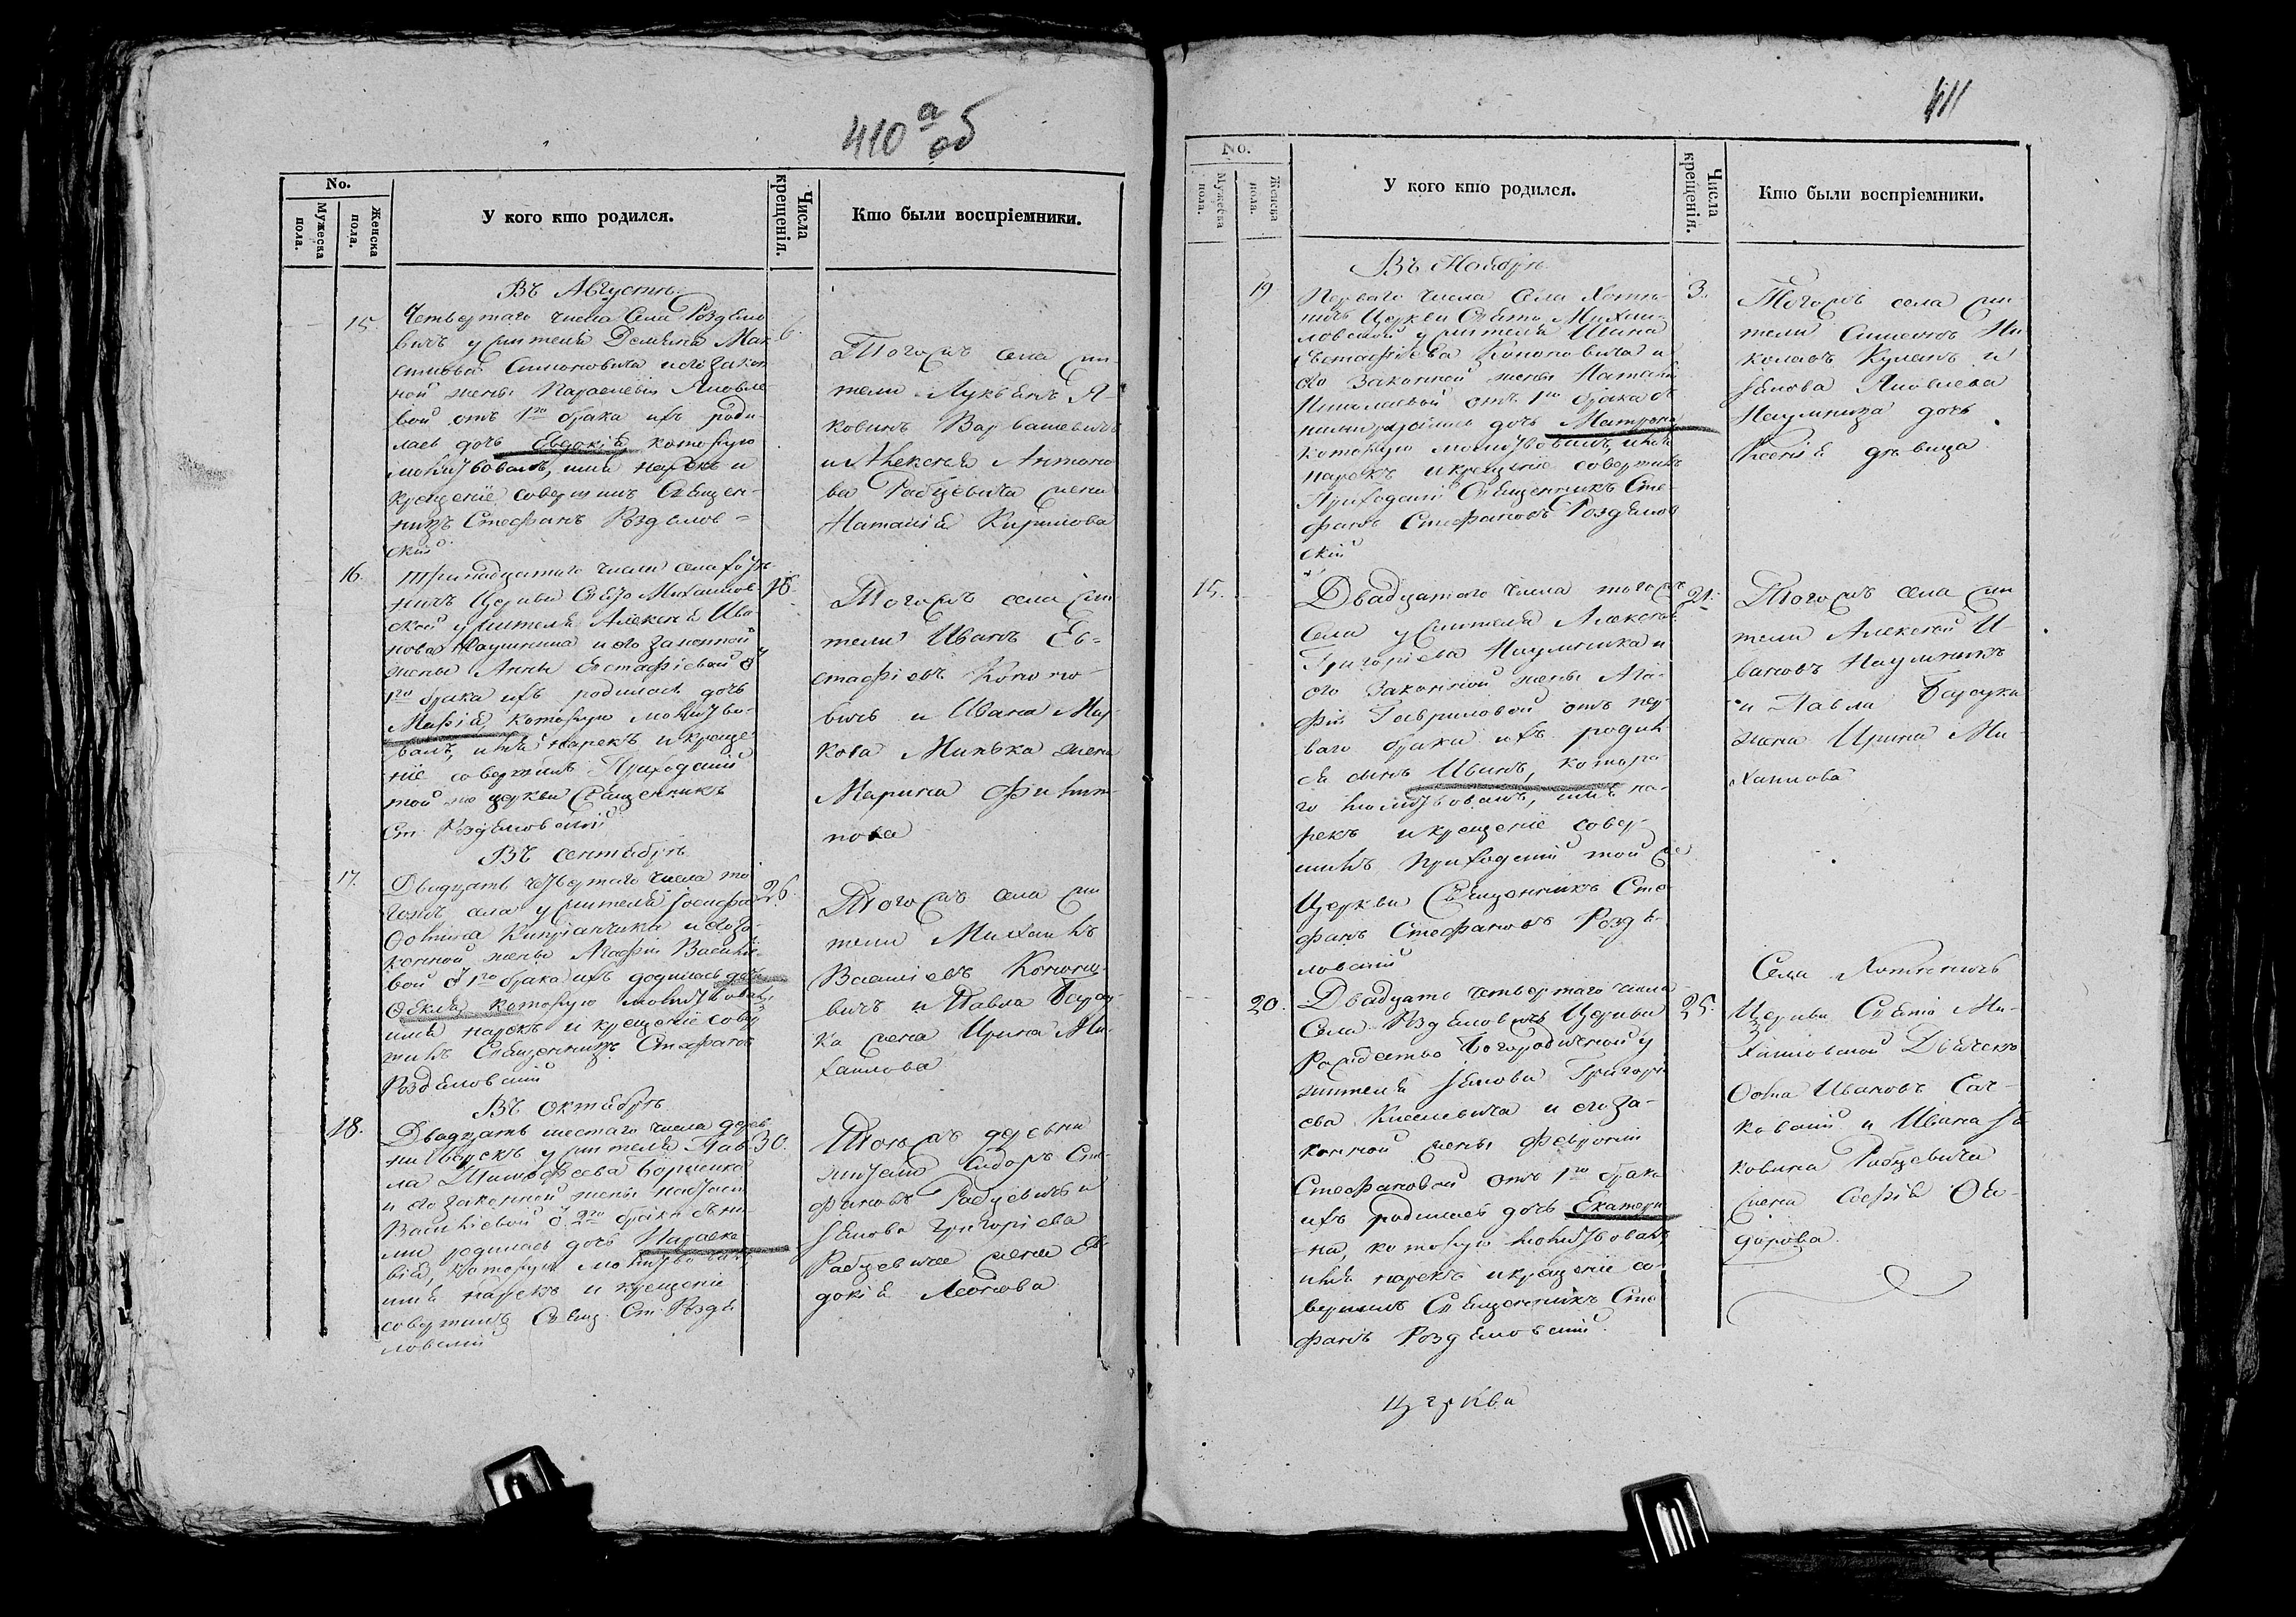 410 а об
No.
Мужеска пола.
Женска пола.
У кого кто родился.
Числа крещенія.
Кто были воспріемники.
Въ Августѣ
15.
Четвертаго числа Села Роздѣло
вичъ у жителя Демьяна Мак
Симоновича и его закон
ной жены Параскевіи Яковле
вой отъ 1го брака ихъ роди
лась дочь Евдокія которую
молитвовалъ, имя нарекъ и
крещеніе совершилъ Священ-
никъ Стефанъ Роздѣлов=
скій
6.
Тогожъ села жи-
тели Лукьянъ Я-
ковинъ
и Алексѣя Антоно
ва Рабцевича жена
Наталія Кирилова
16.
Тринадцатаго числа села
Церкви Свято Михайлов
ской у жителя Алексѣя Ива
нова Наумчика и его законной
жены Анны Евстафіевой
1го брака ихъ родилась дочь
Марія, которую молитво-
валъ, имя нарекъ и креще
ніе совершилъ Приходскій
той же церкви Священникъ
Ст. Роздѣловскій
16.
Тогожъ села жи
тели Иванъ Ев=
стафіевъ Кононо-
вичъ и Ивана
Минька жена
Марина Филип
пова
Въ Сентябрѣ
17.
Двадцать четвертаго числа то
гожъ села у жителя Іосифа
и его за-
конной жены Агафіи Василіе-
вой 1го брака ихъ родилась дочь
Ѳекла, которую молитвовалъ,
имя нарекъ и крещеніе совер
шилъ Священникъ Стефанъ
Роздѣловскій
26.
Тогожъ села жи
тели Михаилъ
Василіевъ Конони-
вичъ и Павла Барсу
ка жена Ирина Ми-
хаилова
Въ Октябрѣ
18.
Двадцать шестаго числа дерев
ни у жителя Пав
ла Тимофѣева
и его законной жены
Василіевой 2го брака съ ни
ми родилась дочь Параске
вія, которую молитвовалъ,
имя нарекъ и крещеніе
совершилъ Свящ. Ст. Роздѣ
ловскій
30.
Тоежъ деревни
Сидоръ Сте-
фановъ Рабцевичъ и
Якова Григоріева
Рабцевича жена Ев
докія Леонова
411
No.
Мужеска пола.
Женска пола.
У кого кто родился.
Числа крещенія.
Кто были воспріемники.
Въ Ноябрѣ
19
Перваго числа Села Хоты-
ничъ Церкви Свято Михаи-
ловской у жителя Ивана
Евстафіева Кононовича и
его Законной жены Наталіи
отъ 1го брака съ
ними родилась дочь Матрона
которую молитвовалъ, имя
нарекъ и крещеніе совершилъ
Приходскій Священникъ Сте-
фанъ Стефановъ Роздѣлов
скій
3.
Тогожъ села жи-
тели Симеонъ Ни
колаевъ и
Якова Яковлева
Наумчика дочь
Ксенія дѣвица
15.
Двадцатаго числа тогожъ
Села у жителя Алексѣя
Григоріева Наумчика и
его Законной жены Ма-
ріи Гавриловой отъ пер
ваго брака ихъ родил
ся сынъ Иванъ, которо
го молитвовалъ, имя на-
рекъ и крещеніе совер-
шилъ Приходскій той же
Церкви Священникъ Сте
фанъ Стефановъ Роздѣ-
ловскій
21.
Тогожъ села жи
тели Алексѣй И-
вановъ Наумчикъ
и Павла Барсука
жена Ирина Ми-
хаилова
20.
Двадцать четвертаго числа
Села Роздѣловичъ Церкви
Рождество Богородичной у
жителя Якова Григорі
ева Киселевича и его за-
конной жены Февроніи
Стефановой отъ 1го брака
ихъ родилась дочь Екатери
-на, которую молитвовалъ
имя нарекъ и крещеніе со
вершилъ Священникъ Сте
фанъ Роздѣловскій.
25.
Села Хотыничъ
Церкви Свято Ми-
хаиловской Дьячекъ
Ѳома Ивановъ Сач-
ковскій и Ивана Яков
ковина Рабцевича
жена Софія Ѳе-
дорова.
Церкви